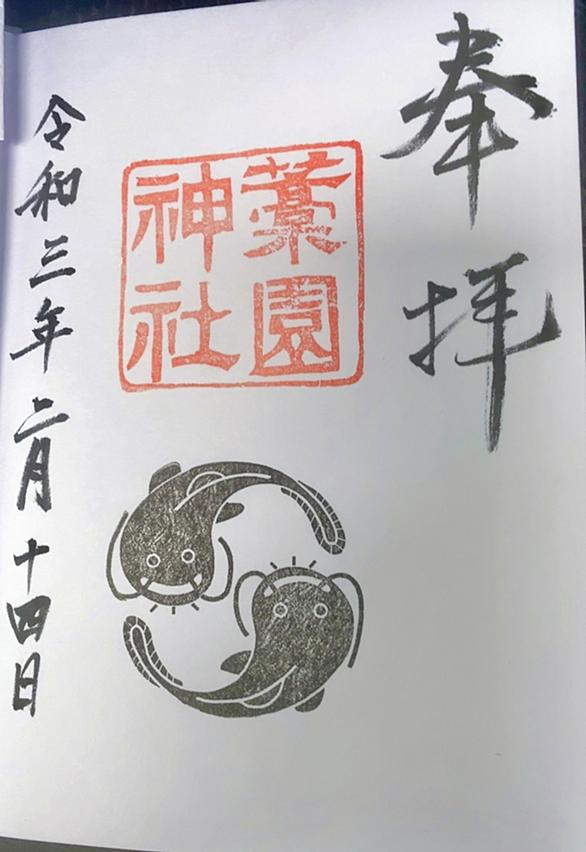 奉拝
藁園
神社
令和三年二月十四日